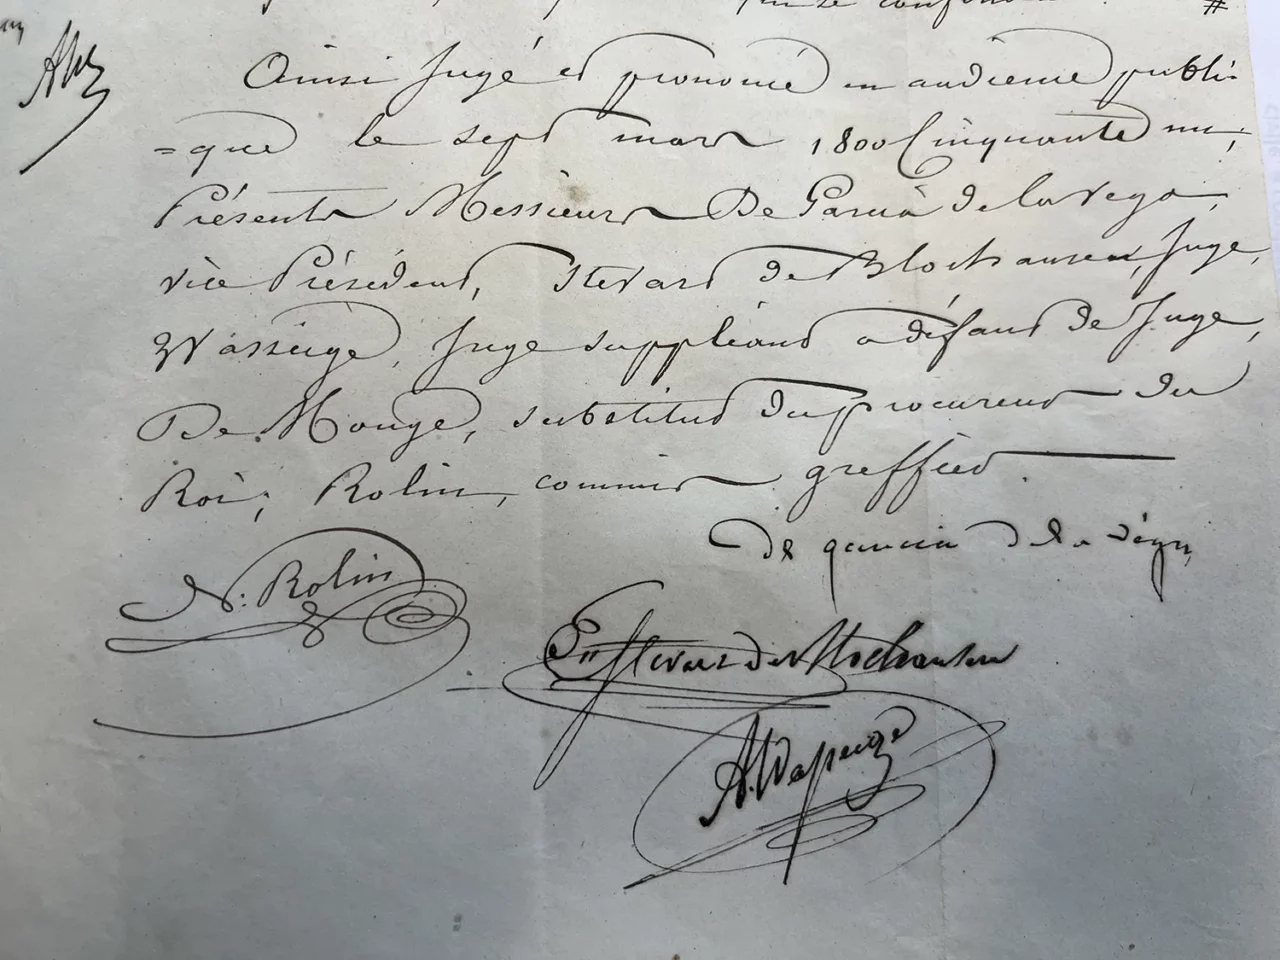 Ainsi Jugé et prononcé en audience publi-
=que le sept mars 1800 Cinquante un;
Présents Messieurs De Garcia de la Vega,
vice Président, Stevart de Blochausen, Juge,
Wasseige, Juge suppléant a défaut de Juge,
De Mongé, substitut du procureur du
Roi; Rolin, commis greffier
de garcia de la véga
N. Rolin
Stevart de Blochausen
A. Wasseige